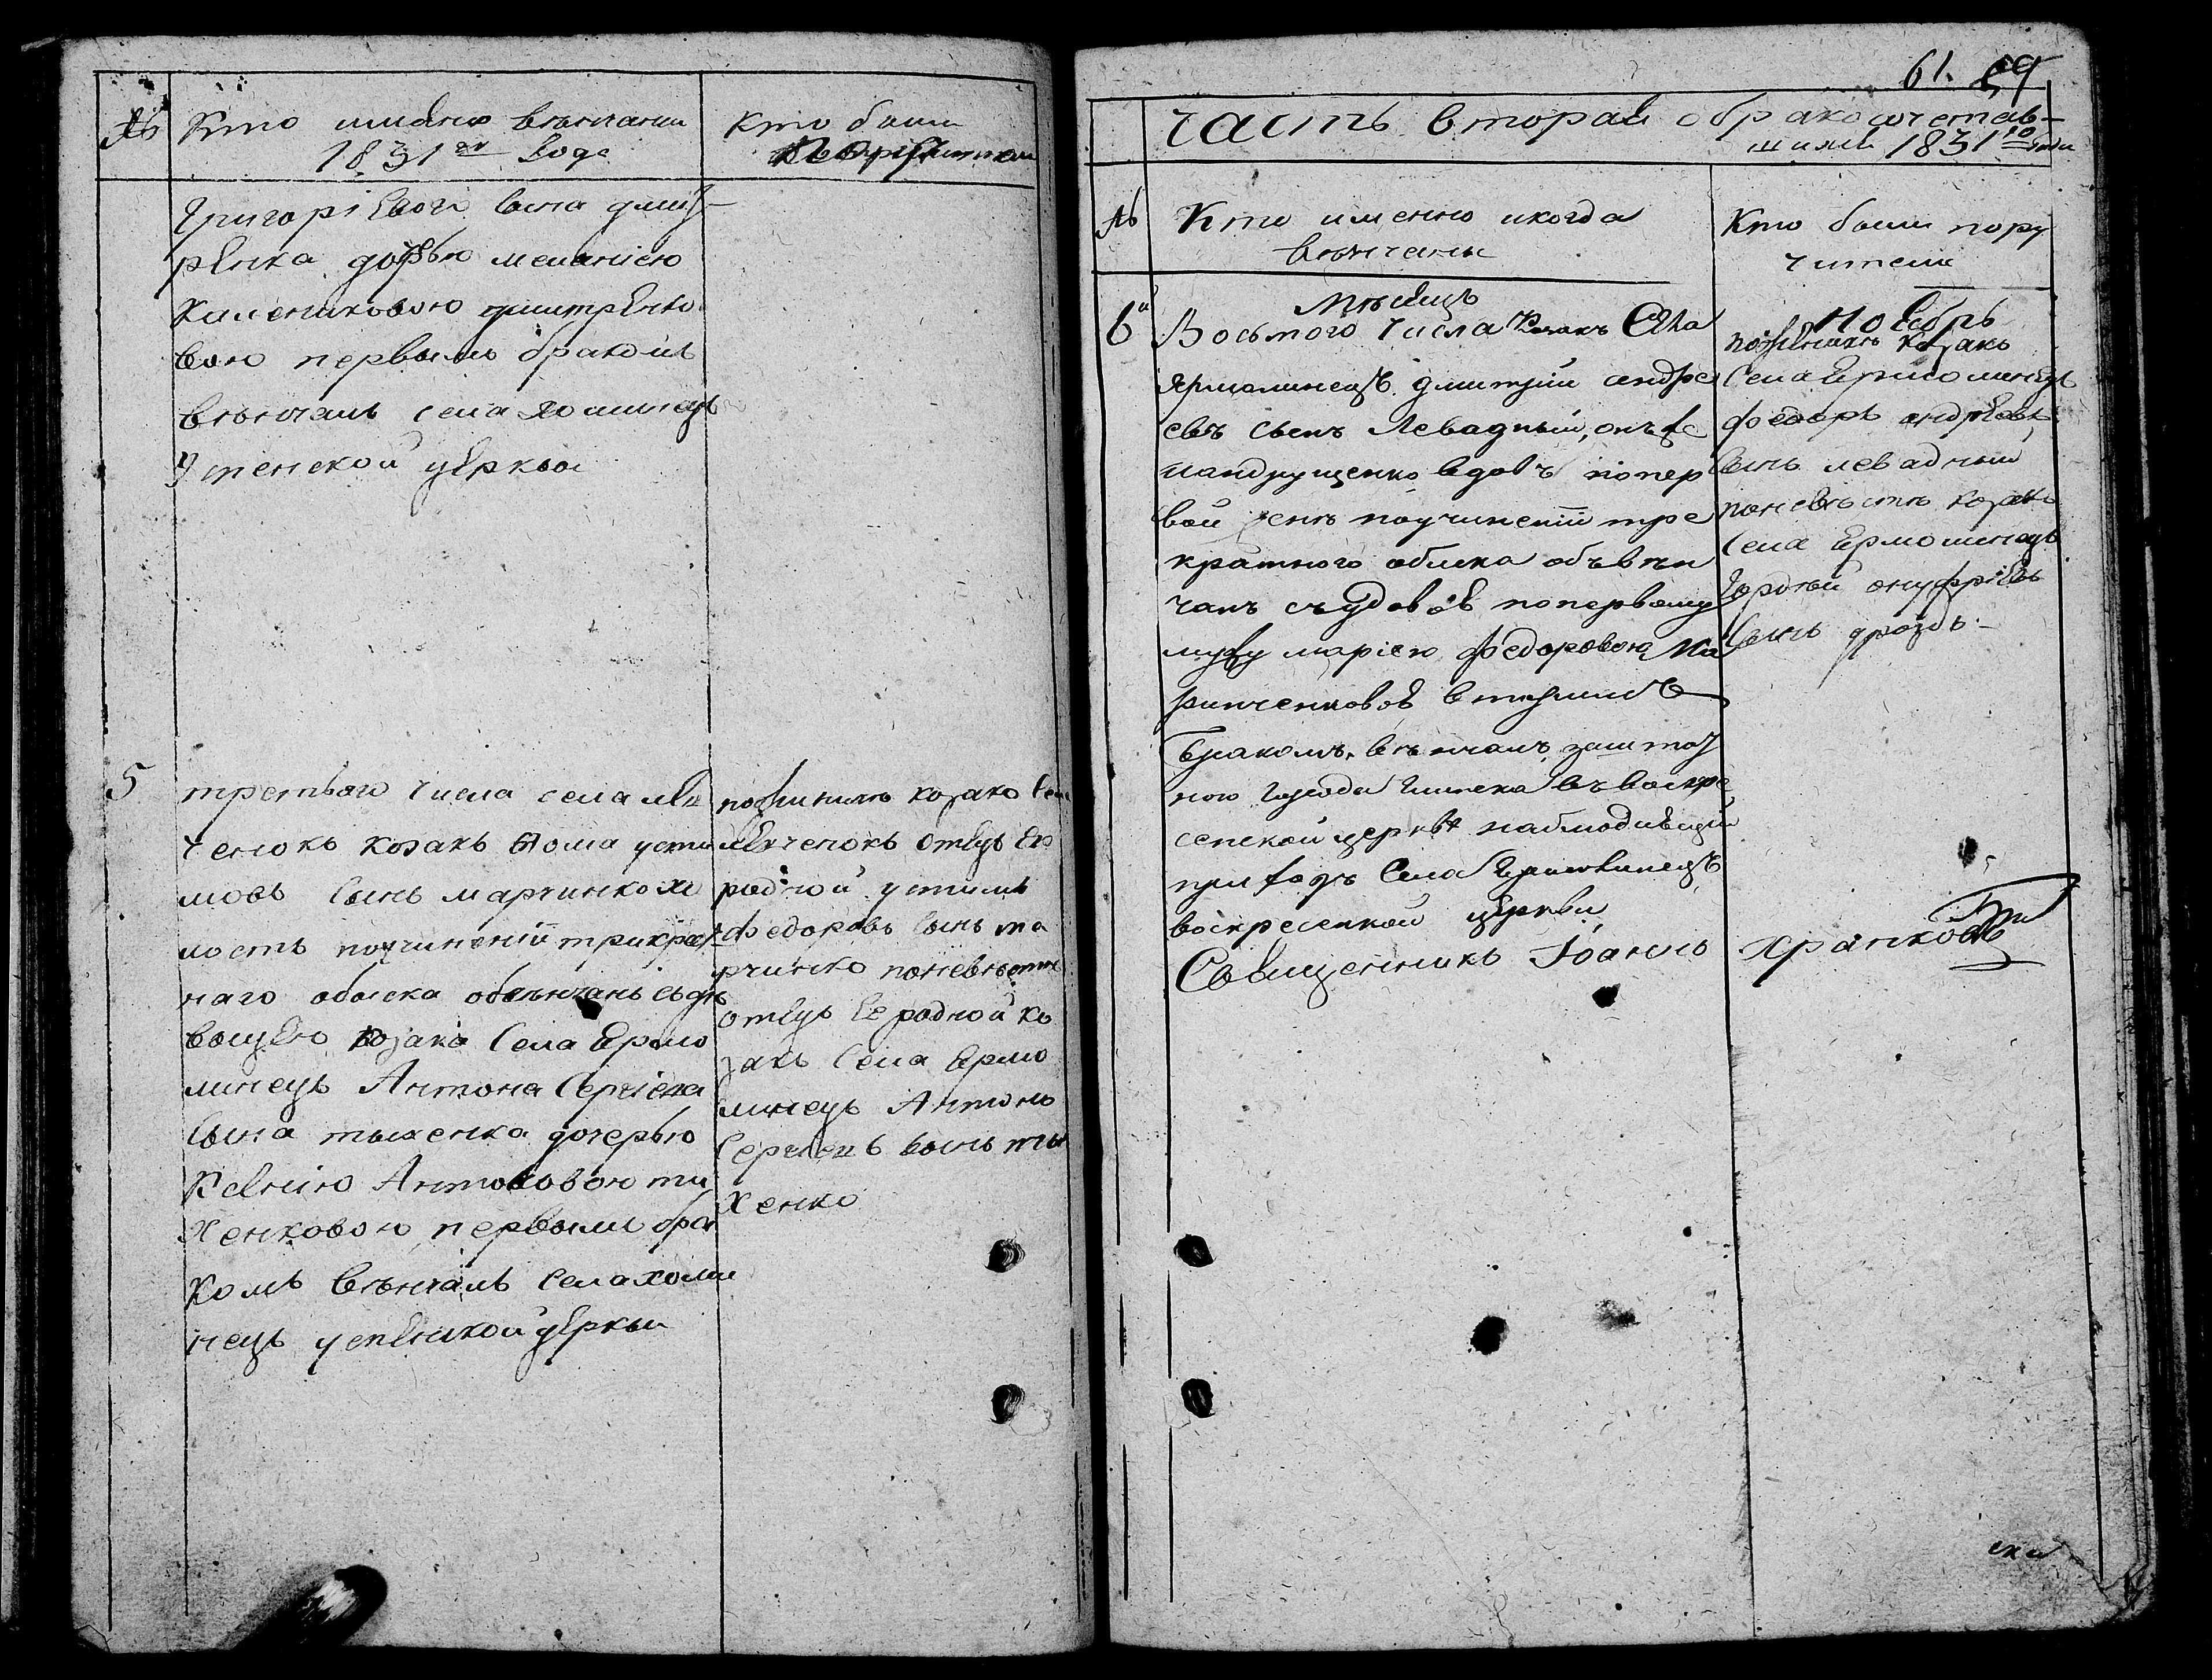 №
Кто имѣнно вѣнчани
1831го Года
Кто были
Григоріевого сына дмит
рѣнка дочерью меланіею
вою первымъ бракомъ
вѣнчалъ села Холминецъ
Успенской церкви
5
третьяго числа села
ченокъ козакъ Фома усти
мовъ сынъ марчинко хо
лостъ поучиненіи трикрат
наго обыска обвѣнчанъ сьдѣ
вицѣю козака села Ермо
линецъ Антона Сергіева
сына тыхенка дочерью
Антоновою ти
хенковою первымъ бра
комъ вѣнчалъ села холми
нецъ успѣнской цѣркви
пожениху козакъ села
отецъ Его
родной устимъ
федоровъ сынъ ма
рчинко поневѣстѣ
отецъ Ее родной ко
закъ села Ермо
линецъ Антонъ
Сергіевъ сынъ ты
хенко
61. 69
часть вторая обракосочетав-
шихся 1831го года
№
Кто именно икогда
вѣнчаны
Кто были пору
чители
Мѣсяцъ
Ноябрь
6й
Восьмого числа Козакъ Села
Ярмолинецъ дмитрий андре
евъ сынъ Левадный, онъже
иандрущенко вдовъ попер
вой женѣ поучиненіи тре
кратного обыска объвѣн
чанъ съудовою попервому
мужу маріею федоровою Ма
ринченковою вторымъ
бракомъ. вѣнчалъ заштат
ного города Глинска въ воскре
сенской церквѣ наблюдающій
приходъ Села Ермолинецъ
воскресенской церкви
Священникъ Іоаннъ Храпковъ
поженихѣ козакъ
Села Ермолинецъ
федоръ андрѣевъ
сынъ левадный
поневѣстѣ козакъ
Села Ермолинецъ
Гордѣй онуфріевъ
сынъ дроздъ.-